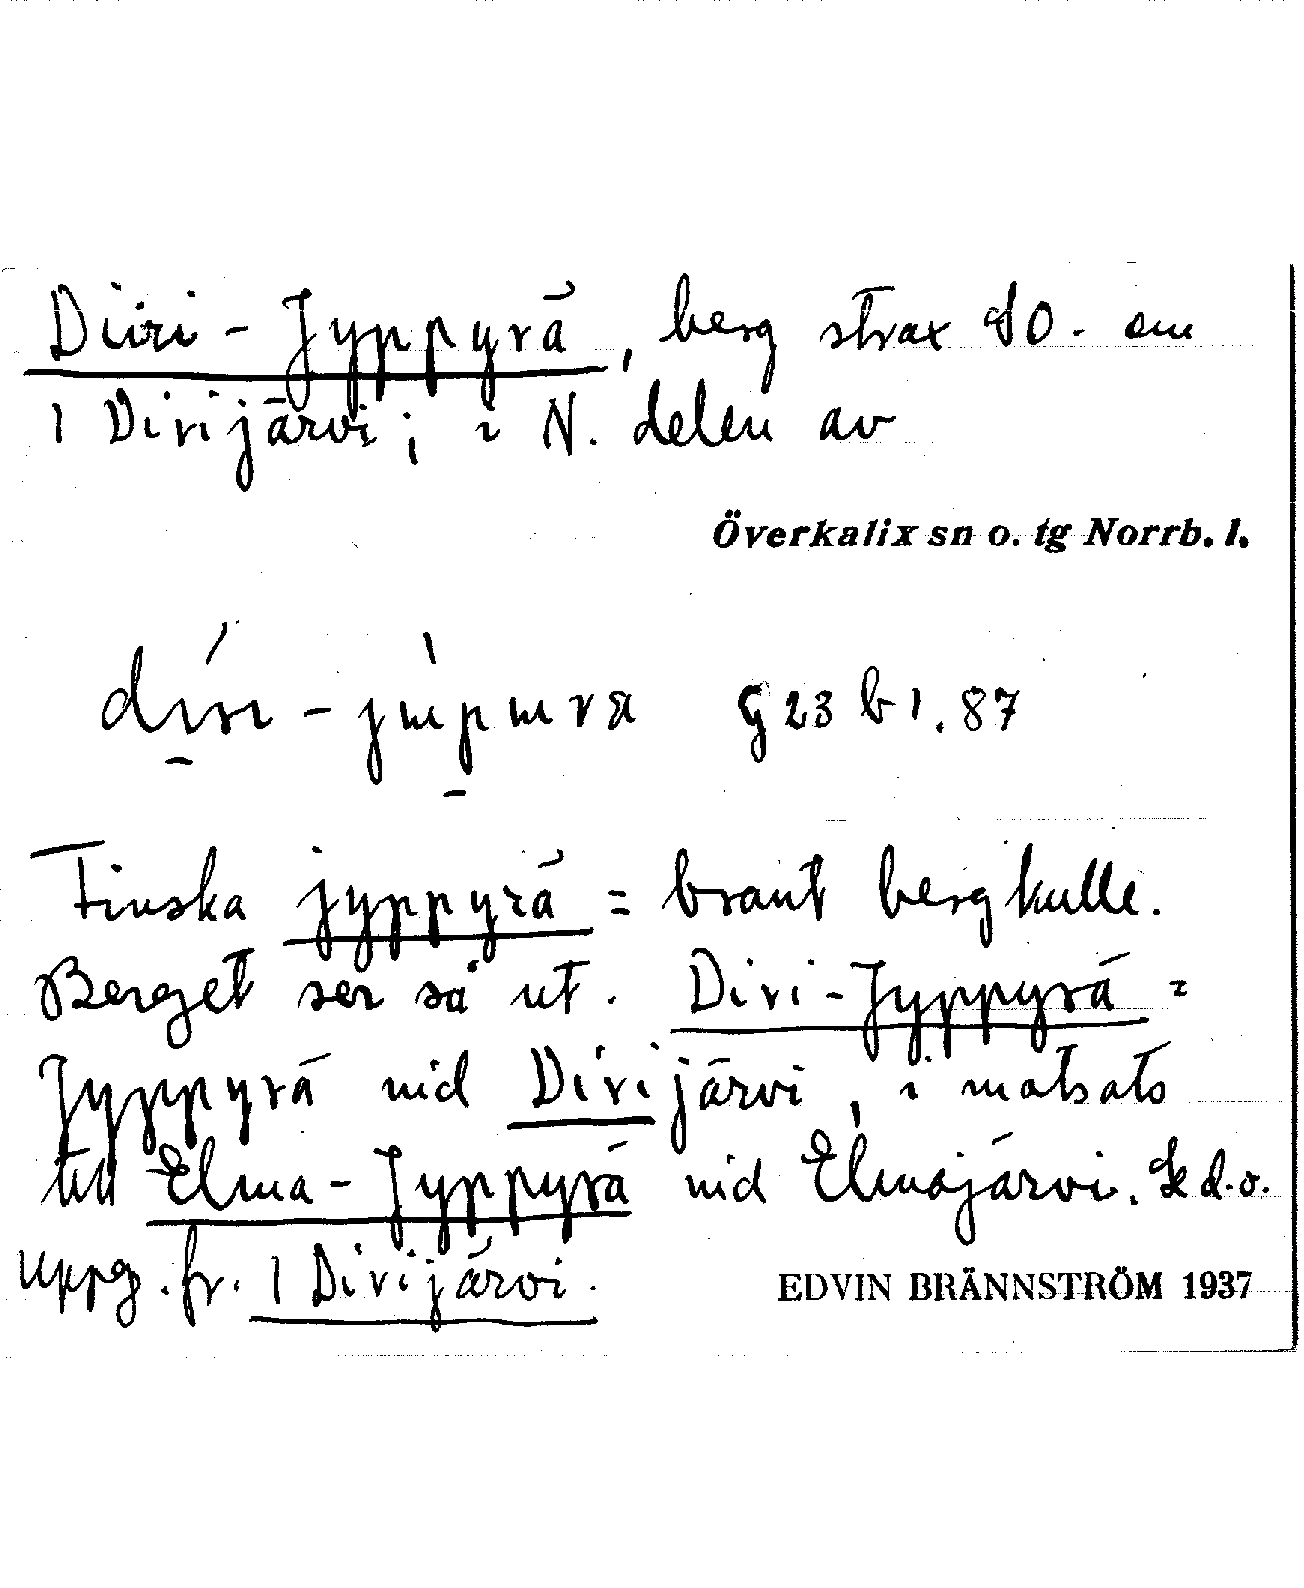 Divi-Jyppyrä, berg strax SO. om
1 Divijärvi; i N. delen av
Överkalix sn o. tg Norrb. l.
G 23 b 1. 87
Finska jyppyrä = brant bergkulle.
Berget ser så ut. Divi-Jyppyrä =
Jyppyrä vid Divijärvi, i motsats
till Elma-Jyppyrä vid Elmajärvi. Se d.o.
Uppg. fr. 1 Divijärvi.
EDVIN BRÄNNSTRÖM 1937